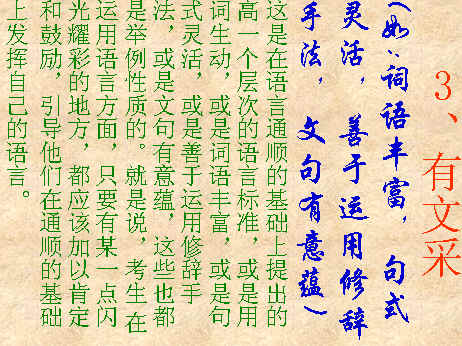 3、有文采
（如：词语丰富，句式
灵活，善于运用修辞
手法，文句有意蕴）
这是在语言通顺的基础上提出的
高一个层次的语言标准，或是用
词生动，或是词语丰富，或是句
式灵活，或是善于运用修辞手
法，或是文句有意蕴，这些也都
是举例性质的。就是说，考生在
运用语言方面，只要有某一点闪
光耀彩的地方，都应该加以肯定
和鼓励，引导他们在通顺的基础
上发挥自己的语言。